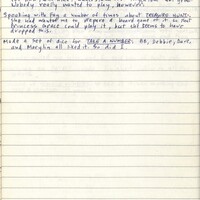 Nobody really wanted to play, however.
Speaking with Fay a number of times about TREASURE HUNT.
Fay had wanted me to prepare a board game of it so that
Princess Grace could play it, but she seems to have
dropped this.
Made a set of dice for TAKE A NUMBER. Debbie, Dave,
and Marylin all liked it. So did I